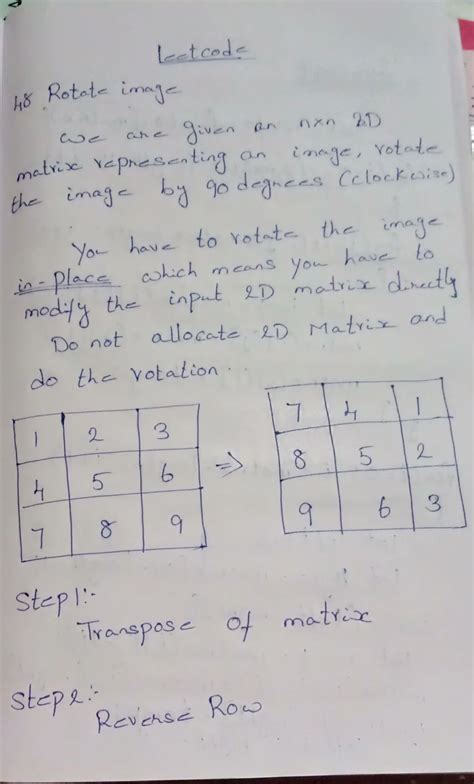 Leetcode
48 Rotate image
We are given an nxn 2D
matrix representing an image, rotate
the image by 90 degrees (clockwise)
You have to rotate the image
in-place which means you have to
modify the input 2D matrix directly
Do not allocate 2D Matrix and
do the rotation.
1 2 3
4 5 6
7 8 9
⇒
7 4 1
8 5 2
9 6 3
Step1:-
Transpose of matrix
Step2:-
Reverse Row